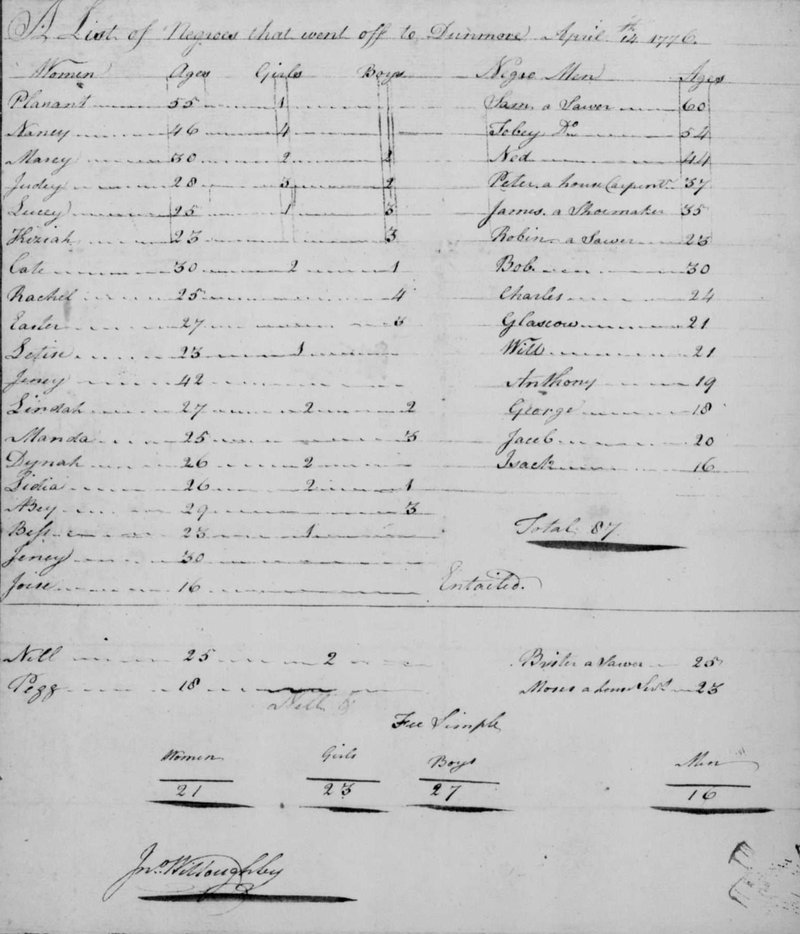 A List of Negroes that went off to Dunmore April 14th 1776.
Women Ages Girls Boys Negroe Men Ages
Planant 55 1 Sam. a Sawer 60
Naney 46 4 Tobey Do 54
Marey 30 2 2 Ned 44
Judey 28 3 2 Peter a house Carpentr 37
Lucey 25 1 3 James. a Shoemaker 35
Hiziah 23 3 Robin a Sawer 23
Cate 30 2 1 Bob 30
Rachel 25 4 Charles 24
Easter 27 3 Glascow 21
Letis 23 1 Will 21
Jeney 42 Anthony 19
Lindah 27 2 2 George 18
Manda 25 3 Jacob 20
Dynah 26 2 Isack 16
Lidia 26 2 1
Abey 29 3
Bess 23 1 Total 87
Jeney 30
Joise 16 Entailed.
Nell 25 2 Brister a Sawer 25
Pegg 18 Moses a house 23
Nell
Fee Simple
Women Girls Boys Men
21 23 27 16
Jno. Willoughby